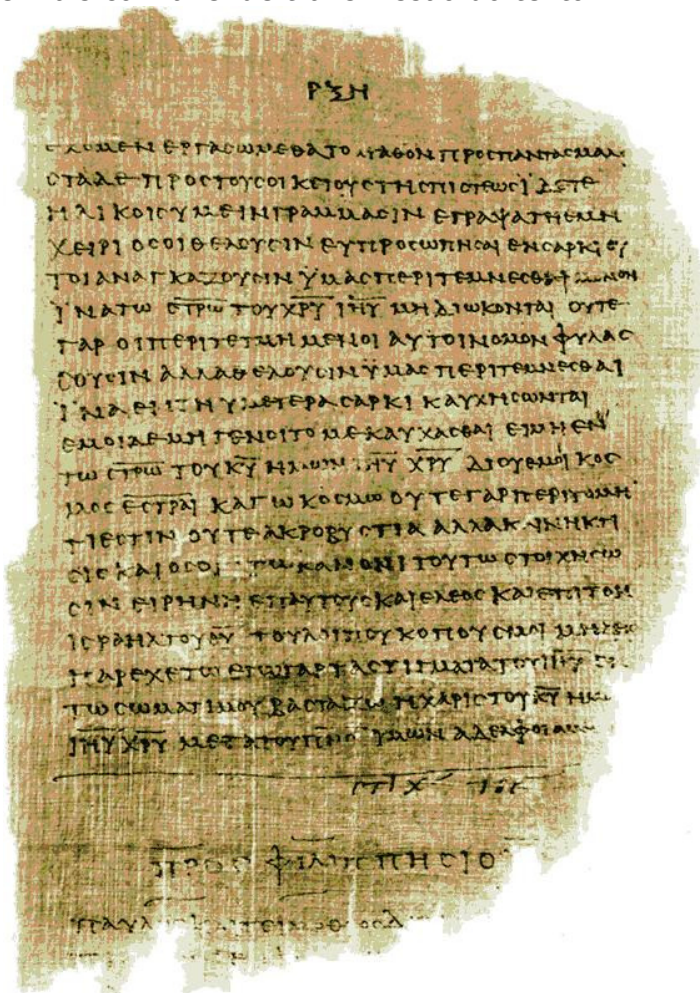 ΡΞΗ
ΕΡΓΑϹΩΜΕΘΑ ΤΟ ΑΓΑΘΟΝ ΠΡΟϹ ΠΑΝΤΑϹ ΜΑΛΙ
ϹΤΑ ΔΕ ΠΡΟϹ ΤΟΥϹ ΟΙΚΕΙΟΥϹ ΤΗϹ ΠΙϹΤΕΩϹ ΪΔΕΤΕ
ΗΛΙΚΟΙϹ ΥΜΕΙΝ ΓΡΑΜΜΑϹΙΝ ΕΓΡΑΨΑ ΤΗ ΕΜΗ
ΧΕΙΡΙ ΟϹΟΙ ΘΕΛΟΥϹΙΝ ΕΥΠΡΟϹΩΠΗϹΑΙ ΕΝ ϹΑΡΚΙ ΟΥ
ΤΟΙ ΑΝΑΓΚΑΖΟΥϹΙΝ ΫΜΑϹ ΠΕΡΙΤΕΜΝΕϹΘΑΙ ΜΟΝΟΝ
ΪΝΑ ΤΩ Ϲ̅Τ̅Ρ̅Ω̅ ΤΟΥ Χ̅Ρ̅Υ̅ Ι̅Η̅Υ̅ ΜΗ ΔΙΩΚΟΝΤΑΙ ΟΥΤΕ
ΓΑΡ ΟΙ ΠΕΡΙΤΕΤΜΗΜΕΝΟΙ ΑΥΤΟΙ ΝΟΜΟΝ ΦΥΛΑϹ
ϹΟΥϹΙΝ ΑΛΛΑ ΘΕΛΟΥϹΙΝ ΫΜΑϹ ΠΕΡΙΤΕΜΝΕϹΘΑΙ
ΪΝΑ ΕΝ ΤΗ ΥΜΕΤΕΡΑ ϹΑΡΚΙ ΚΑΥΧΗϹΩΝΤΑΙ
ΕΜΟΙ ΔΕ ΜΗ ΓΕΝΟΙΤΟ ΜΕ ΚΑΥΧΑϹΘΑΙ ΕΙ ΜΗ ΕΝ
ΤΩ Ϲ̅Τ̅Ρ̅Ω̅ ΤΟΥ Κ̅Υ̅ ΗΜΩΝ Ι̅Η̅Υ̅ Χ̅Ρ̅Υ̅ ΔΙ ΟΥ ΕΜΟΙ ΚΟϹ
ΜΟϹ Ε̅Ϲ̅Τ̅Ρ̅Α̅Ι̅ ΚΑΓΩ ΚΟϹΜΩ ΟΥΤΕ ΓΑΡ ΠΕΡΙΤΟΜΗ
ΤΙ ΕϹΤΙΝ ΟΥΤΕ ΑΚΡΟΒΥϹΤΙΑ ΑΛΛΑ ΚΑΙΝΗ ΚΤΙ
ϹΙϹ ΚΑΙ ΟϹΟΙ ΤΩ ΚΑΝΟΝΙ ΤΟΥΤΩ ϹΤΟΙΧΗϹΩ
ϹΙΝ ΕΙΡΗΝΗ ΕΠ ΑΥΤΟΥϹ ΚΑΙ ΕΛΕΟϹ ΚΑΙ ΕΠΙ ΤΟΝ
ΙϹΡΑΗΛ ΤΟΥ Θ̅Υ̅ ΤΟΥ ΛΟΙΠΟΥ ΚΟΠΟΥϹ ΜΟΙ ΜΗΔΕΙϹ
ΠΑΡΕΧΕΤΩ ΕΓΩ ΓΑΡ ΤΑ ϹΤΙΓΜΑΤΑ ΤΟΥ Ι̅Η̅Υ̅ ΕΝ
ΤΩ ϹΩΜΑΤΙ ΜΟΥ ΒΑϹΤΑΖΩ Η ΧΑΡΙϹ ΤΟΥ Κ̅Υ̅ ΗΜΩ
Ι̅Η̅Υ̅ Χ̅Ρ̅Υ̅ ΜΕΤΑ ΤΟΥ Π̅Ν̅Ϲ̅ ΥΜΩΝ ΑΔΕΛΦΟΙ ΑΜΗΝ
ϹΤΙΧ
ΠΡΟϹ ΦΙΛΙΠΠΗϹΙΟ
ΠΑΥΛΟϹ ΚΑΙ ΤΕΙΜΟΘΕΟϹ Δ